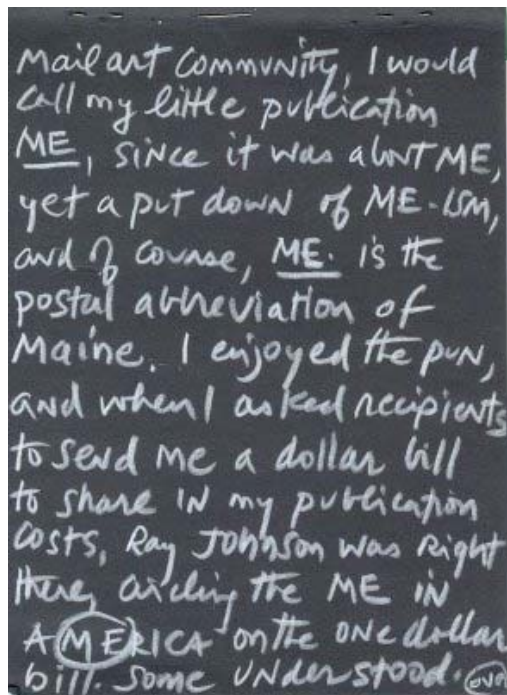 Mail art Community, I would
call my little publication
ME, since it was about ME,
yet a put down of ME-ISM,
and of course, ME. is the
postal abbreviation of
Maine. I enjoyed the pun,
and when I asked recipients
to send me a dollar bill
to share in my publication
costs, Ray Johnson was right
there, circling the ME in
AMERICA on the one dollar
bill. Some understood. over